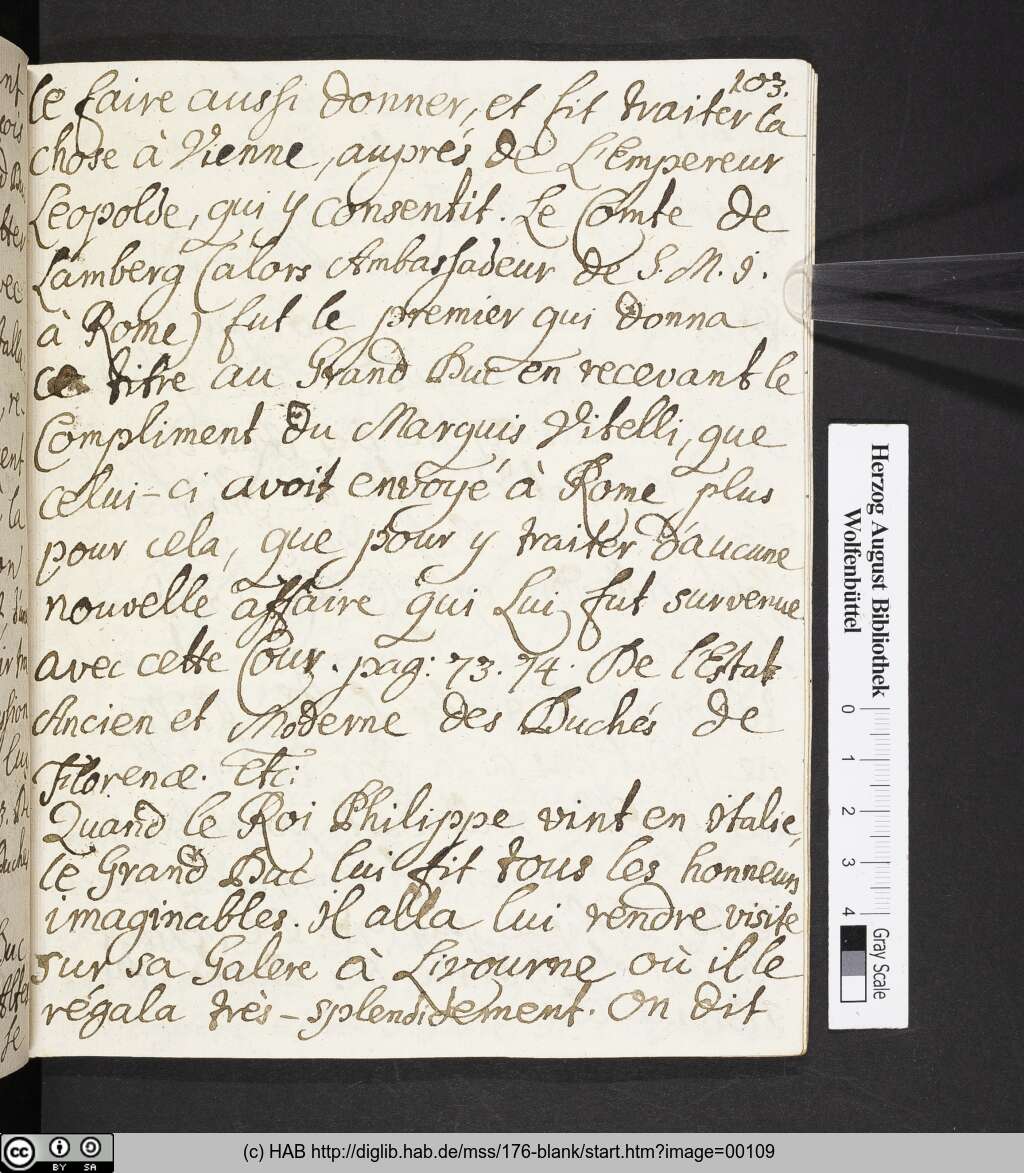 103.
le faire aussi donner, et fit traiter la
chose à Vienne, auprés de L'Empereur
Leopolde, qui y consentit. Le Comte de
Lamberg (alors Ambassadeur de S. M. I.
à Rome) fut le premier qui donna
ce titre au Grand Duc en recevant le
Compliment du Marquis Vitelli, que
celui-ci avoit envoyé à Rome plus
pour cela, que pour y traiter d'aucune
nouvelle affaire qui Lui fut survenue
avec cette Cour. pag: 73. 74. De l'Estat
Ancien et Moderne des Duchés de
Florence. Etc:
Quand le Roi Philippe vint en Italie,
le Grand Duc lui fit tous les honneurs
imaginables. Il alla lui rendre visite
sur sa Galere à Livourne où il le
régala très-splendidement. On dit
Herzog August Bibliothek
Wolfenbüttel
0 1 2 3 4
Gray Scale
cc BY SA
(c) HAB http://diglib.hab.de/mss/176-blank/start.htm?image=00109